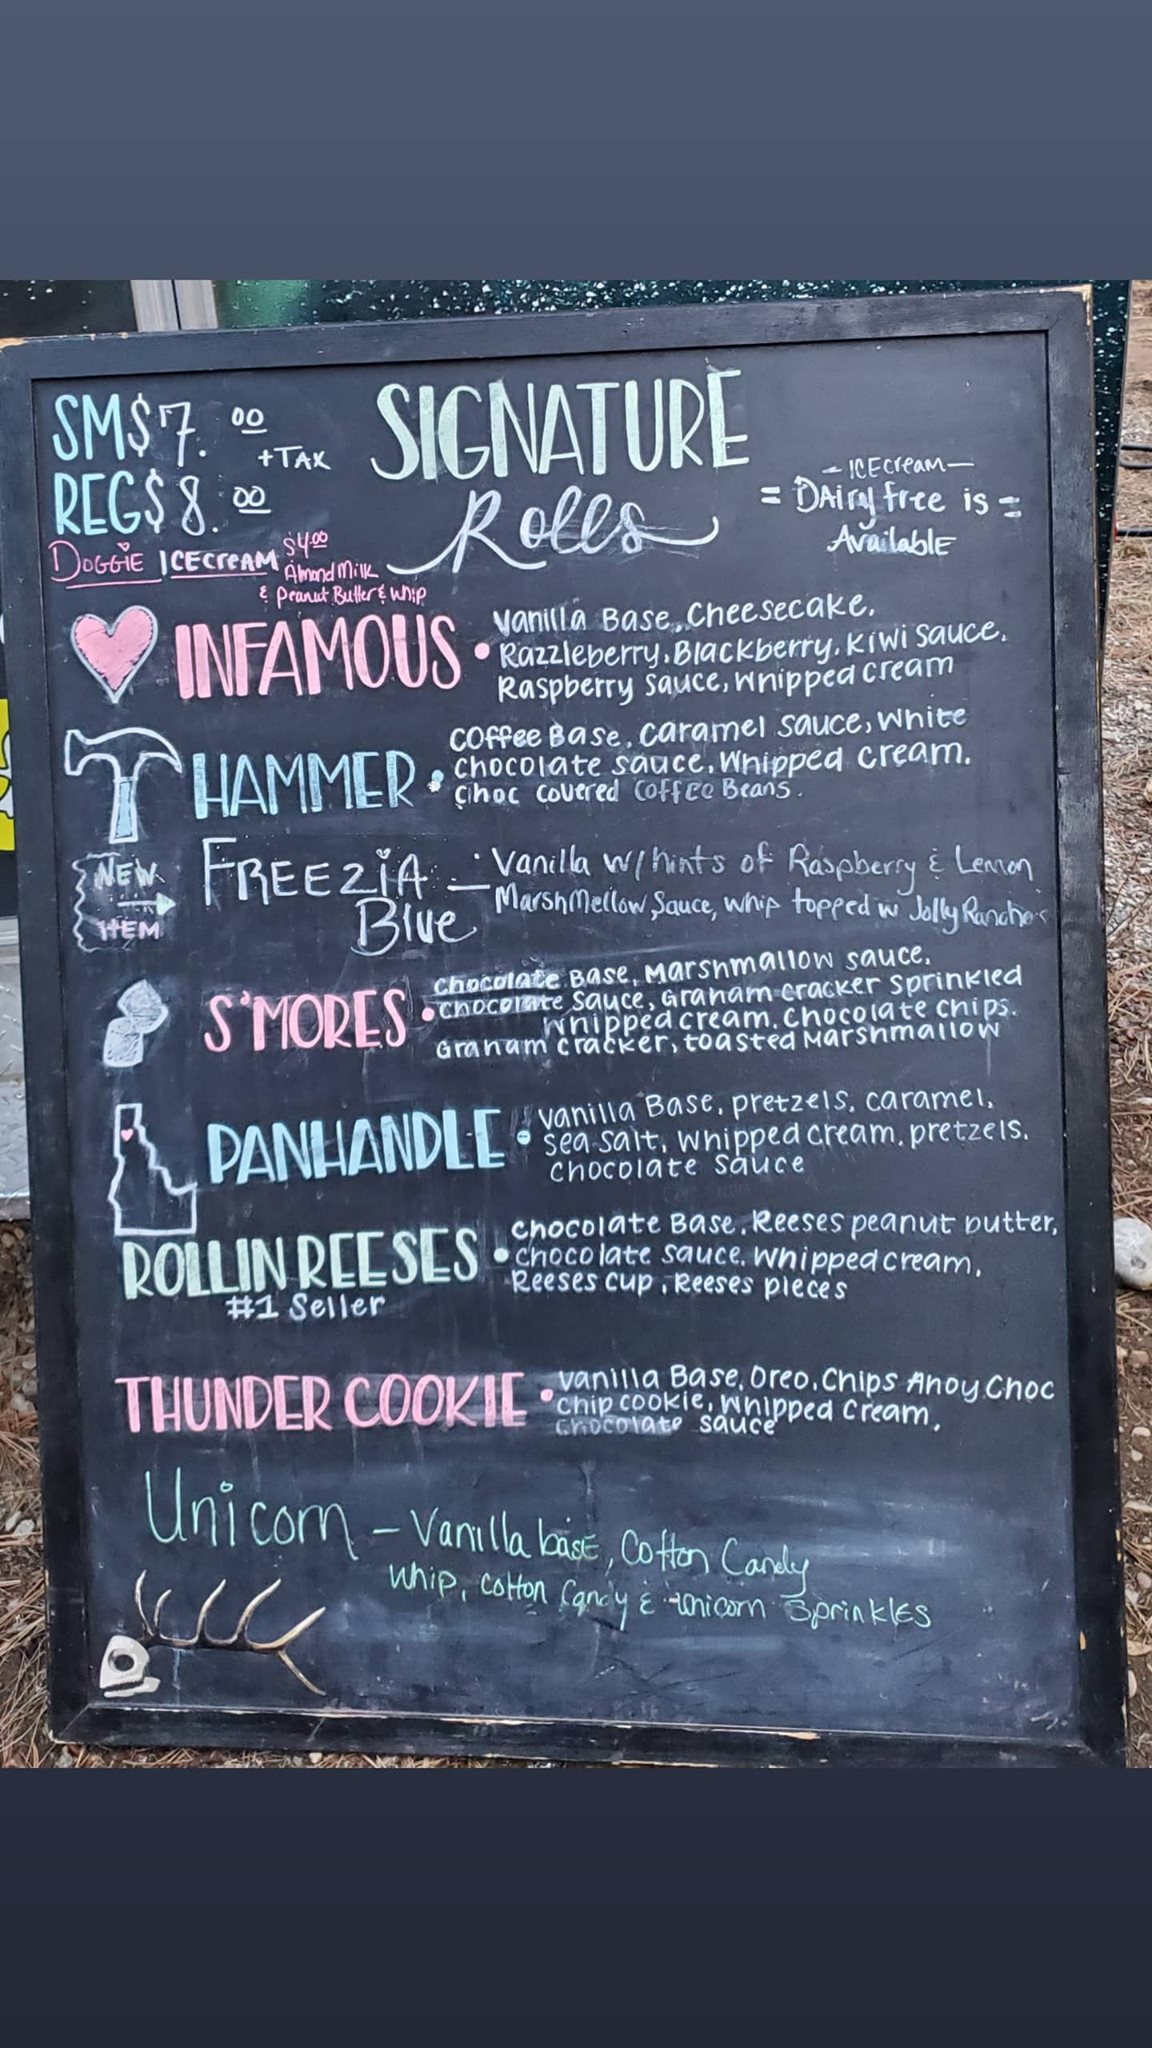 SM $7.00
+TAX
REG $8.00
SIGNATURE
Rolls
- ICEcream -
= DAiry free is =
Available
DOGGIE ICECreAM $4.00
Almond Milk
& Peanut Butter & whip
INFAMOUS • Vanilla Base, Cheesecake,
Razzleberry, Blackberry, Kiwi Sauce,
Raspberry Sauce, Whipped Cream
HAMMER • Coffee Base, Caramel Sauce, White
Chocolate Sauce, Whipped Cream,
Choc covered Coffee Beans.
NEW
ITEM
FREEZiA
Blue
- Vanilla w/ hints of Raspberry & Lemon
MarshMellow Sauce, Whip topped w Jolly Ranchers
S'MORES • Chocolate Base, Marshmallow Sauce,
Chocolate Sauce, Graham Cracker Sprinkled
Whipped Cream, Chocolate Chips,
Graham Cracker, Toasted Marshmallow
PANHANDLE • Vanilla Base, Pretzels, Caramel,
Sea Salt, Whipped Cream, Pretzels,
Chocolate Sauce
ROLLIN REESES • Chocolate Base, Reeses Peanut Butter,
Chocolate Sauce, Whipped Cream,
Reeses Cup, Reeses Pieces
#1 Seller
THUNDER COOKIE • Vanilla Base, Oreo, Chips Ahoy Choc
Chip Cookie, Whipped Cream,
Chocolate Sauce
Unicorn - Vanilla base, Cotton Candy
Whip, Cotton Candy & Unicorn Sprinkles